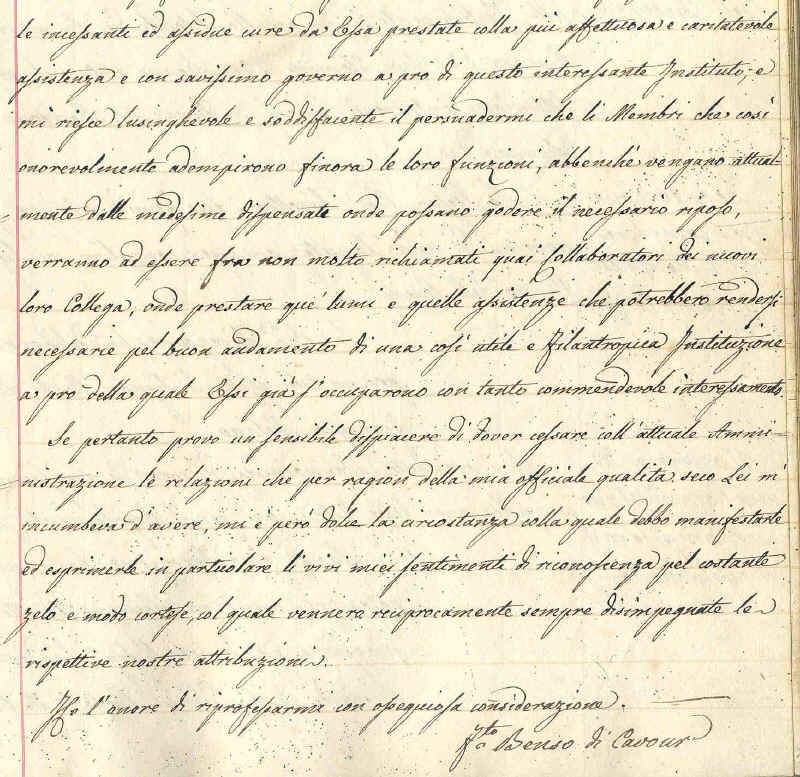 le incessanti ed assidue cure da Essa prestate colla più affettuosa e caritatevole
assistenza e con savissimo governo a pro di questo interessante Instituto, e
mi riesce lusinghevole e soddisfacente il persuadermi che li Membri che così
onorevolmente adempirono finora le loro funzioni, abbenchè vengano attual-
mente dalle medesime dispensati onde possano godere il necessario riposo,
verranno ad essere fra non molto richiamati quai Collaboratori dei nuovi
loro Collega, onde prestare que' lumi e quelle assistenze che potrebbero rendersi
necessarie pel buon andamento di una così utile e filantropica Instituzione
a pro della quale Essi già s'occuparono con tanto commendevole interessamento.
Se pertanto provo un sensibile dispiacere di dover cessare coll'attuale Ammi=
nistrazione le relazioni che per ragion della mia officiale qualità seco Lei m'
incumbeva d'avere, mi è però dolce la circostanza colla quale debbo manifestarle
ed esprimerle in particolare li vivi miei sentimenti di riconoscenza pel costante
zelo e modo cortese, col quale vennere reciprocamente sempre disimpegnate le
rispettive nostre attribuzioni.
Ho l'onore di riprofessarmi con ossequiosa considerazione.
F.to Benso di Cavour